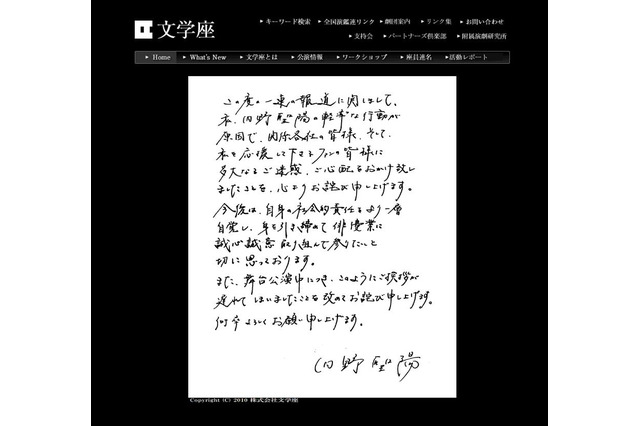 文学座
キーワード検索 全国演鑑連リンク 劇団案内 リンク集 お問い合わせ
支持会 パートナーズ倶楽部 附属演劇研究所
Home What's New 文学座とは 公演情報 ワークショップ 座員連名 活動レポート
この度の一連の報道に関しまして、
私、内野聖陽の軽率な行動が
原因で、関係各社の皆様、そして、
私を応援して下さるファンの皆様に
多大なるご迷惑、ご心配をおかけ致し
ましたことを、心よりお詫び申し上げます。
今後は、自身の社会的責任をより一層
自覚し、身を引き締めて俳優業に
誠心誠意取り組んで参りたいと
切に思っております。
また、舞台公演中につき、このようにご挨拶が
遅れてしまいましたことを改めてお詫び申し上げます。
何卒よろしくお願い申し上げます。
内野聖陽
Copyright (C) 2010 株式会社文学座